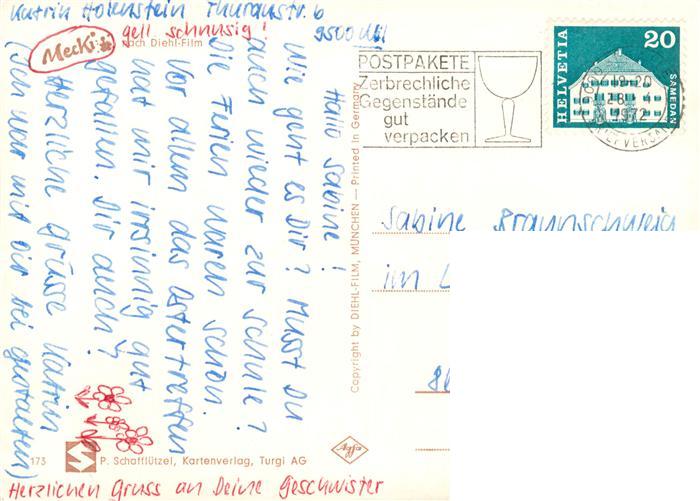 Katrin Holenstein Thuraustr. 6
9500 Wil
gell schnusig!
Mecki
nach Diehl-Film
Hallo Sabine!
Wie geht es Dir? Musst Du
auch wieder zur Schule?
Die Ferien waren schön.
Vor allem das Ostertreffen
hat mir irrsinnig gut
gefallen. Dir auch?
Herzliche Grüsse Katrin
(Ich war mit dir bei gestalten)
Herzlichen Gruss an Deine Geschwister
173
P. Schafflützel, Kartenverlag, Turgi AG
Agfa
Copyright by DIEHL-FILM, MÜNCHEN — Printed in Germany
POSTPAKETE
Zerbrechliche
Gegenstände
gut
verpacken
HELVETIA
20
SAMEDAN
18-20
1972
BRIEFVERSAND
Sabine Braunschweig
im L
8